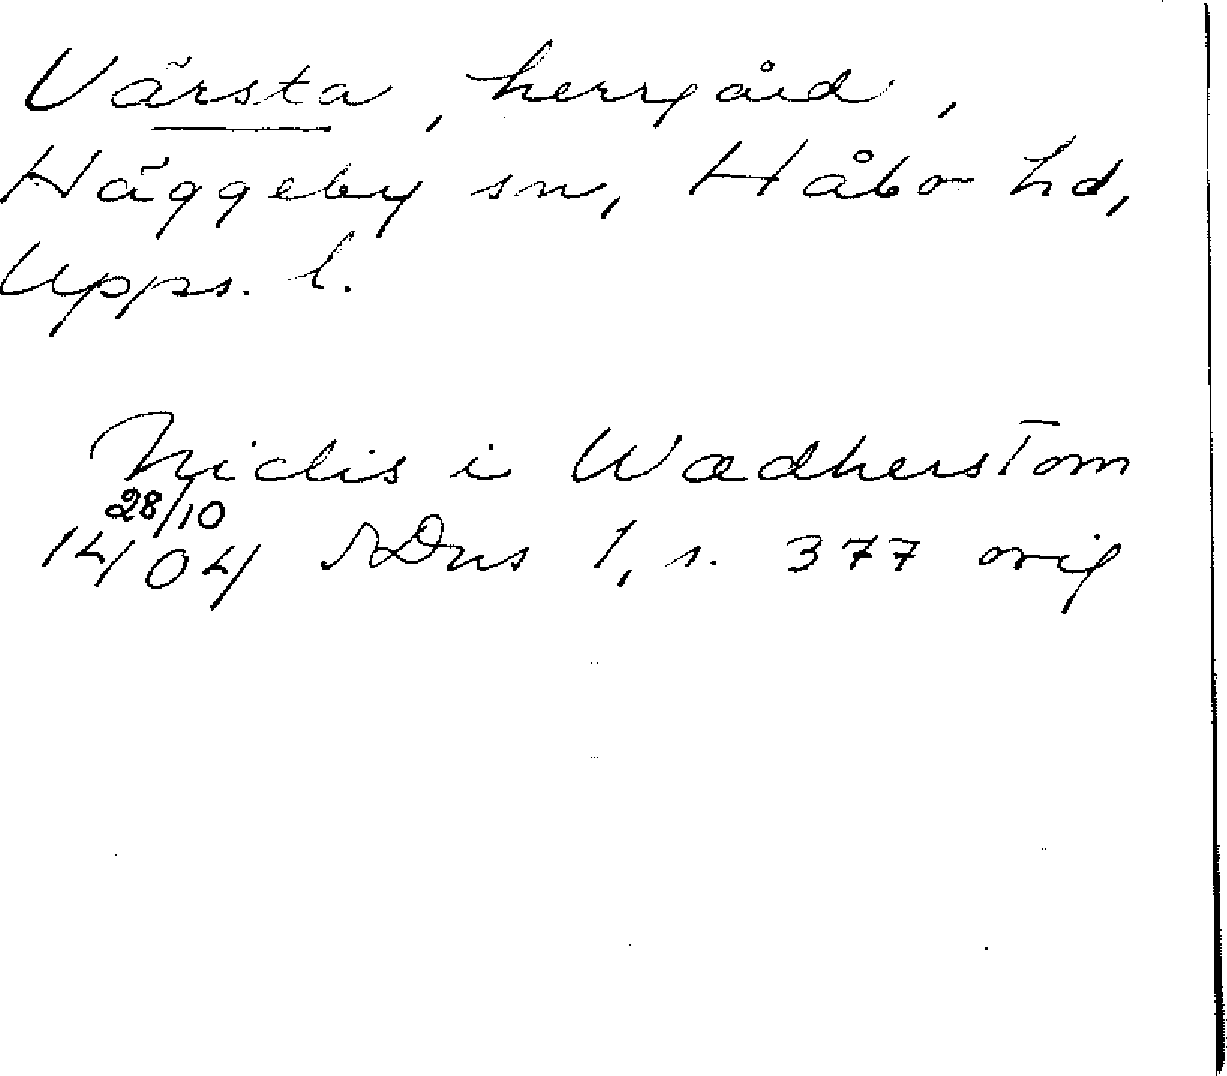 Värsta, herrgård,
Häggeby sn, Håbo hd,
Upps. l.
Niclis i Wædherstom
28/10 1404 SDns 1, s. 377 orig